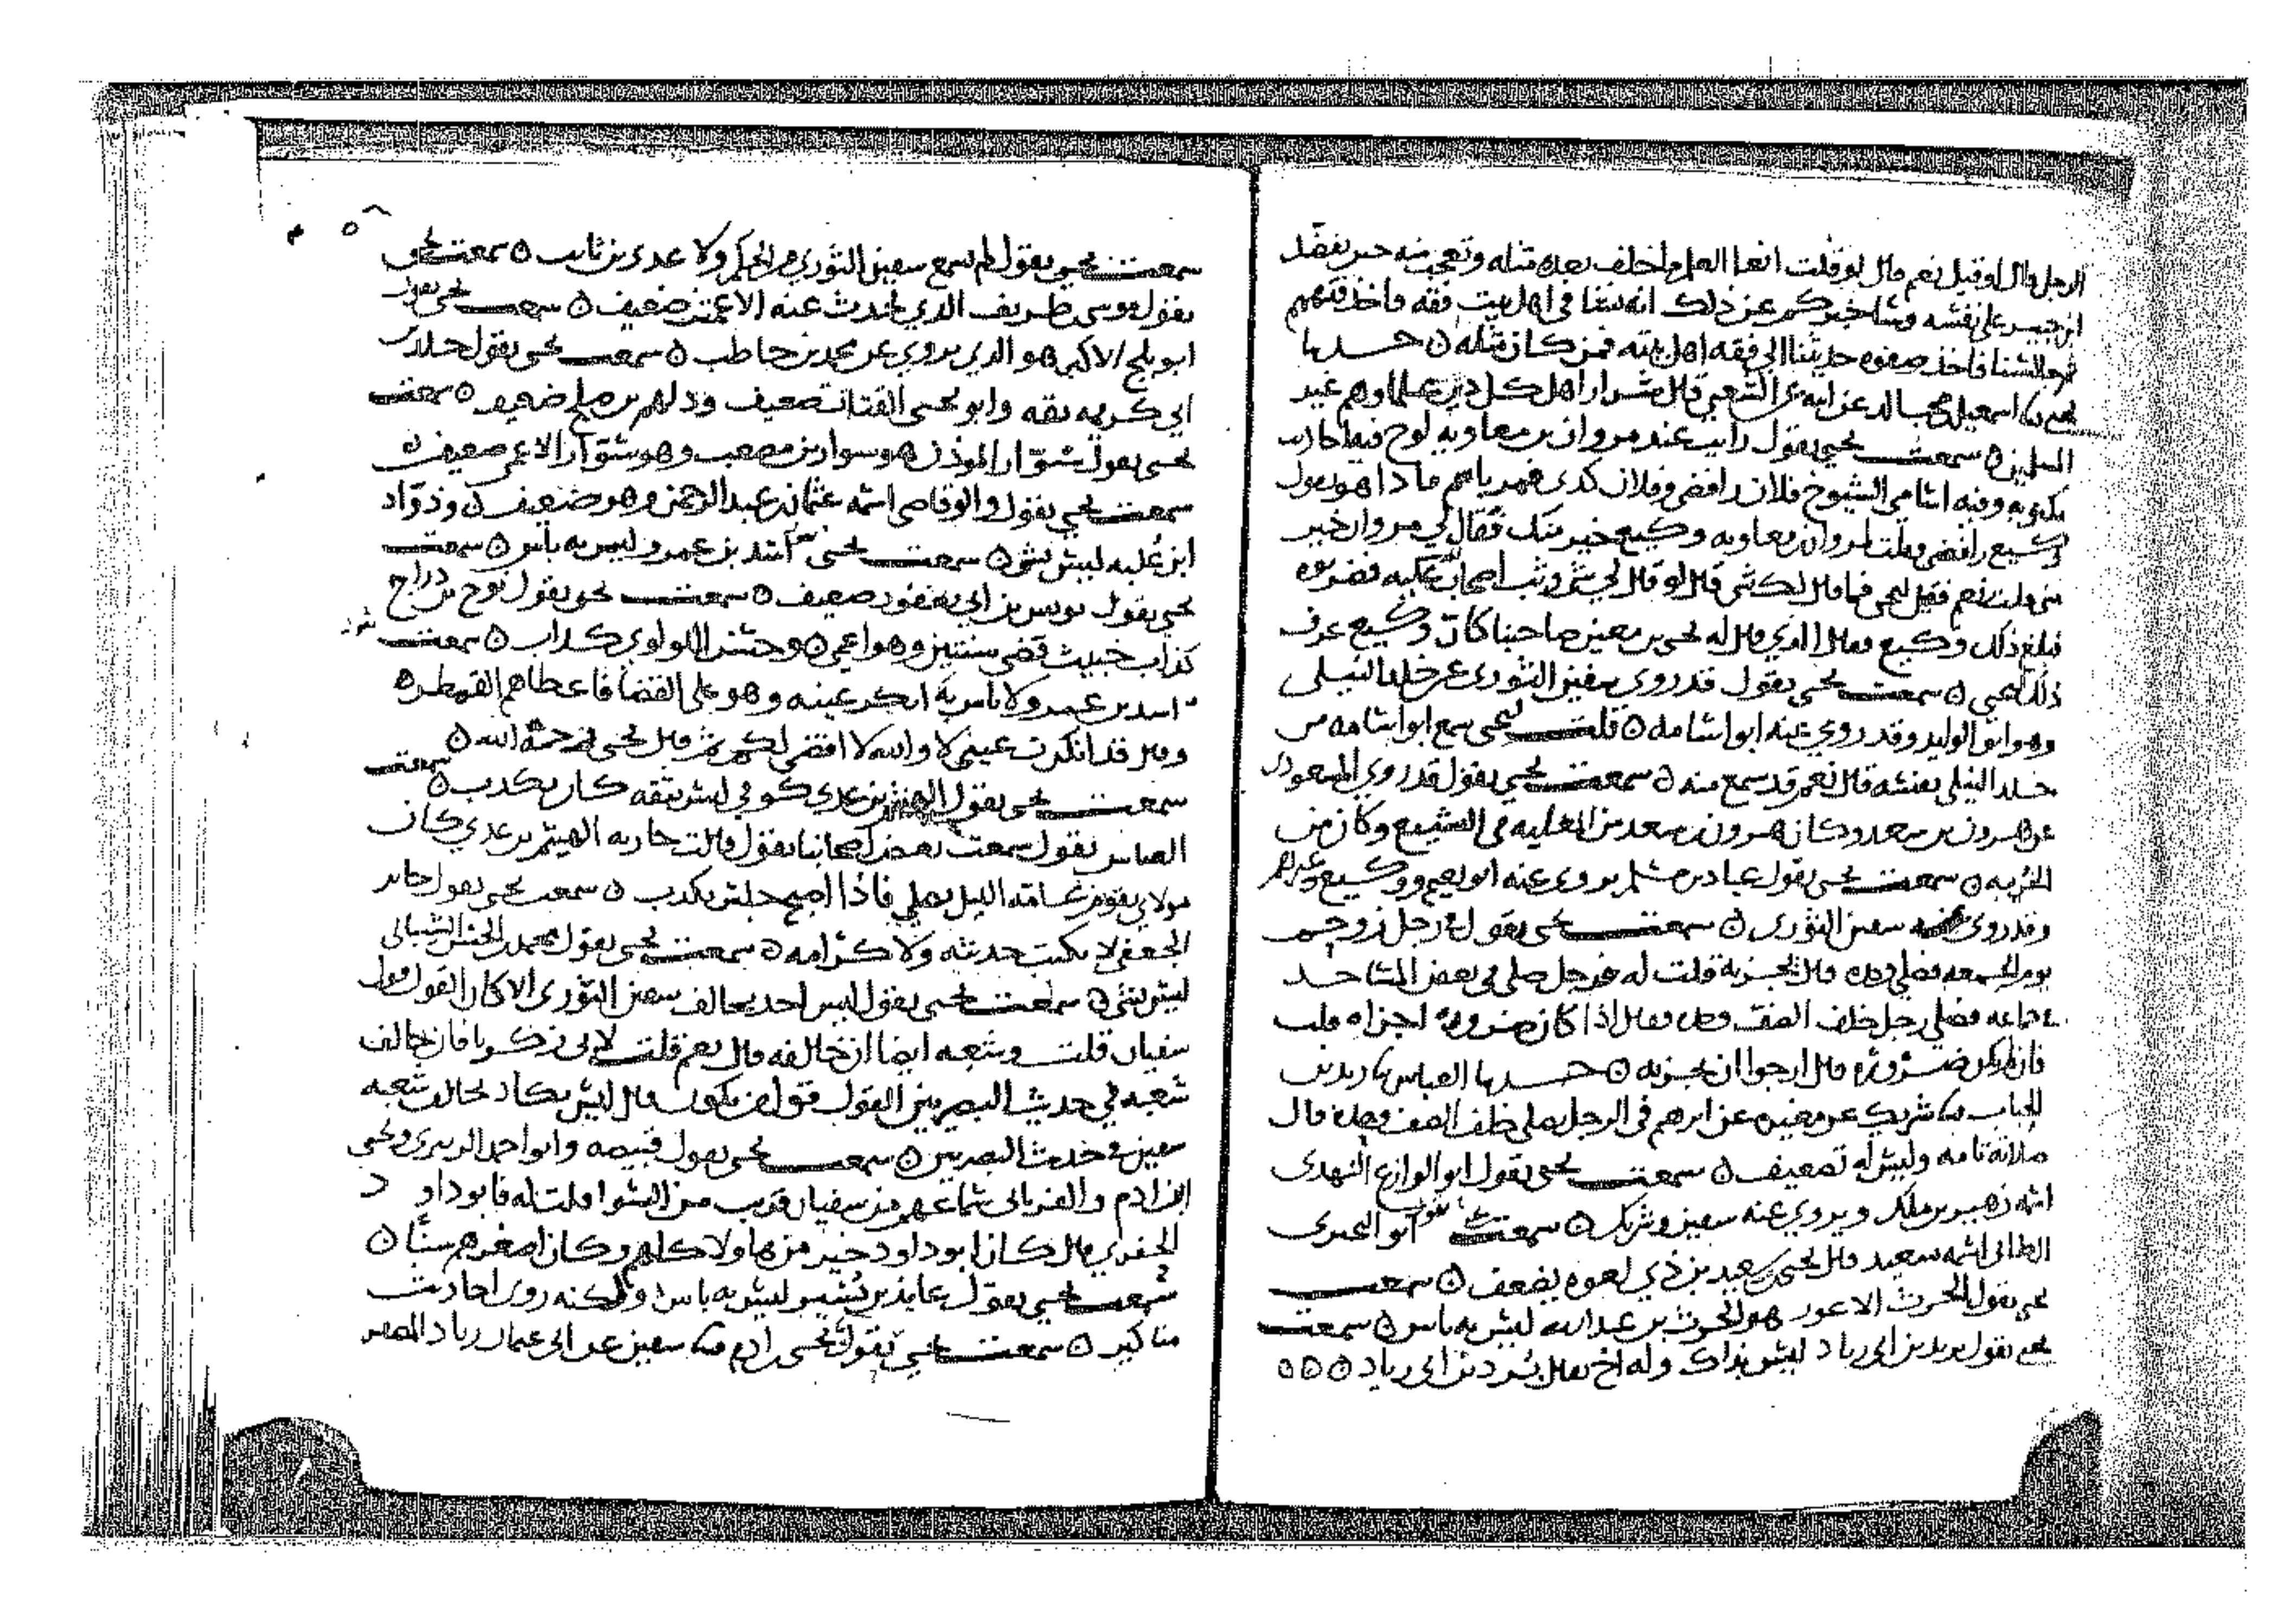 الرجل قال او قيل نعم قال لو قلت انعا العلم ما خلف بعده مثله وتعجب منه حين يفضل
ابن جبير على نفسه وساخبركم عن ذلك انه نشا في اهل بيت فقه فاخذ فقههم
ثم جالسنا فاخذ صفوه حديثنا الى فقه اهل بيته فمن كان مثله ه حدثنا
يحيى نا اسمعيل بن مجالد عن ابيه عن الشعبي قال شرار اهل كل دين علماوهم غير
المسلمين ه سمعت يحيى يقول رايت عند مروان بن معاويه لوح فيه
مكتوبه وفيه اسامي الشيوخ فلان رافضي وفلان كذى فمر باسم
وكيع رافضي فقلت لمروان بن معاويه وكيع خير منك فقال لي مروان خير
مني قلت نعم فقيل ليحيى فما قال لك شي قال لو قال لي شي وثب اصحاب عليه فضربوه
فبلغ ذلك وكيع فقال الذي قال له يحيى بن معين صاحبنا كان وكيع عرف
ذلك ليحيى ه سمعت يحيى يقول قد روى سفين الثوري عن خلد النيلي
وهو ابو الوليد وقد روى عنه ابو اسامه ه قلت ليحيى سمع ابو اسامه من
خلد النيلي بنفسه قال نعم قد سمع منه ه سمعت يحيى يقول قد روى المسعودي
عن هرون بن سعد وكان هرون بن سعد من المغليه في التشيع وكان من
سمعت يحيى يقول عباد بن مسلم يروى عنه ابو نعيم ووكيع وغيرهم
وقد روى عنه سفين الثوري ه سمعت يحيى يقول في رجل زوحم
يوم الجمعه فصلى وحده قال يجزيه قلت له فرجل صلى في بعض المساجد
في جماعه فصلى رجل خلف الصف وحده فقال اذا كان ضروره اجزاه قلت
فان لم يكن ضروره قال ارجوا ان يجزيه ه حدثنا العباس نا زيد بن
الحباب نا شريك عن مغيره عن ابرهيم في الرجل يصلي خلف الصف وحده قال
صلاته تامه وليس له تضعيف ه سمعت يحيى يقول ابو الوازع النهدي
اسمه زهير بن ملك ويروي عنه سفين وشريك ه سمعت يحيى يقول ابو البختري
الطائي اسمه سعيد قال يحيى سعيد بن ذي لعوه يضعف ه سمعت
يحيى يقول الحرث الاعور هو الحرث بن عبد الله ليس به باس ه سمعت
يحيى يقول يزيد بن ابي زياد ليس بذاك وله اخ يقال برد بن ابي زياد ه ه ه
سمعت يحيى يقول لم يسمع سفين الثوري من الحكم ولا عدي بن ثابت ه سمعت يحيى
يقول موسى بن طريف الذي يحدث عنه الاعمش ضعيف ه سمعت يحيى يقول
ابو بلج الاكبر هو الذي يروي عن محمد بن حاطب ه سمعت يحيى يقول خلد بن
ابي كريمه ثقه وابو يحيى القتات ضعيف ودلهم بن صالح ضعيف ه سمعت
يحيى يقول سوار الموذن هو سوار بن مصعب وهو سوار الاعمى ضعيف ه
سمعت يحيى يقول والوقاصي اسمه عثمان بن عبد الرحمن وهو ضعيف ه وذواد
ابن علبه ليس بشي ه سمعت يحيى اسد بن عمرو ليس به باس ه سمعت
يحيى يقول يونس بن ابي يعفور ضعيف ه سمعت يحيى يقول نوح بن دراج
كذاب خبيث قضى سنتين وهو اعمى ه وحسن اللولوي كذاب ه سمعت
اسد بن عمرو لا باس به انكر عينيه وهو على القضا فاعطاهم القمطره
وقال قد انكرت عيني لا والله لا اقضي لكم ثم قال يحيى رحمه الله ه
سمعت يحيى يقول الهيثم بن عدي كوفي ليس بثقه كان يكذب ه سمعت
العباس يقول سمعت بعض اصحابنا يقول قالت جاريه الهيثم بن عدي كان
مولاي يقوم عامة الليل يصلي فاذا اصبح جلس يكذب ه سمعت يحيى يقول جابر
الجعفي لا يكتب حديثه ولا كرامه ه سمعت يحيى يقول محمد بن الحسن الشيباني
ليس بشي ه سمعت يحيى يقول ليس احد يخالف سفين الثوري الا كان القول قول
سفيان قلت وشعبه ايضا ان خالفه قال نعم قلت لابي زكريا فان خالف
شعبه في حديث البصريين القول قول من يكون قال ليس يكاد يخالف شعبه
سفين في حديث البصريين ه سمعت يحيى يقول قبيصه وابو احمد الزبيري ويحيى
ابن ادم والفريابي سماعهم من سفيان قريب من السوا قلت له فابو داود
الحفري قال كان ابو داود خير من هاولا كلهم وكان اصغرهم سنا ه
سمعت يحيى يقول عايذ بن نسير ليس به باس ولكنه روى احاديث
مناكير ه سمعت يحيى يقول يحيى بن ادم نا سفين عن ابي عثمان زياد المصفر